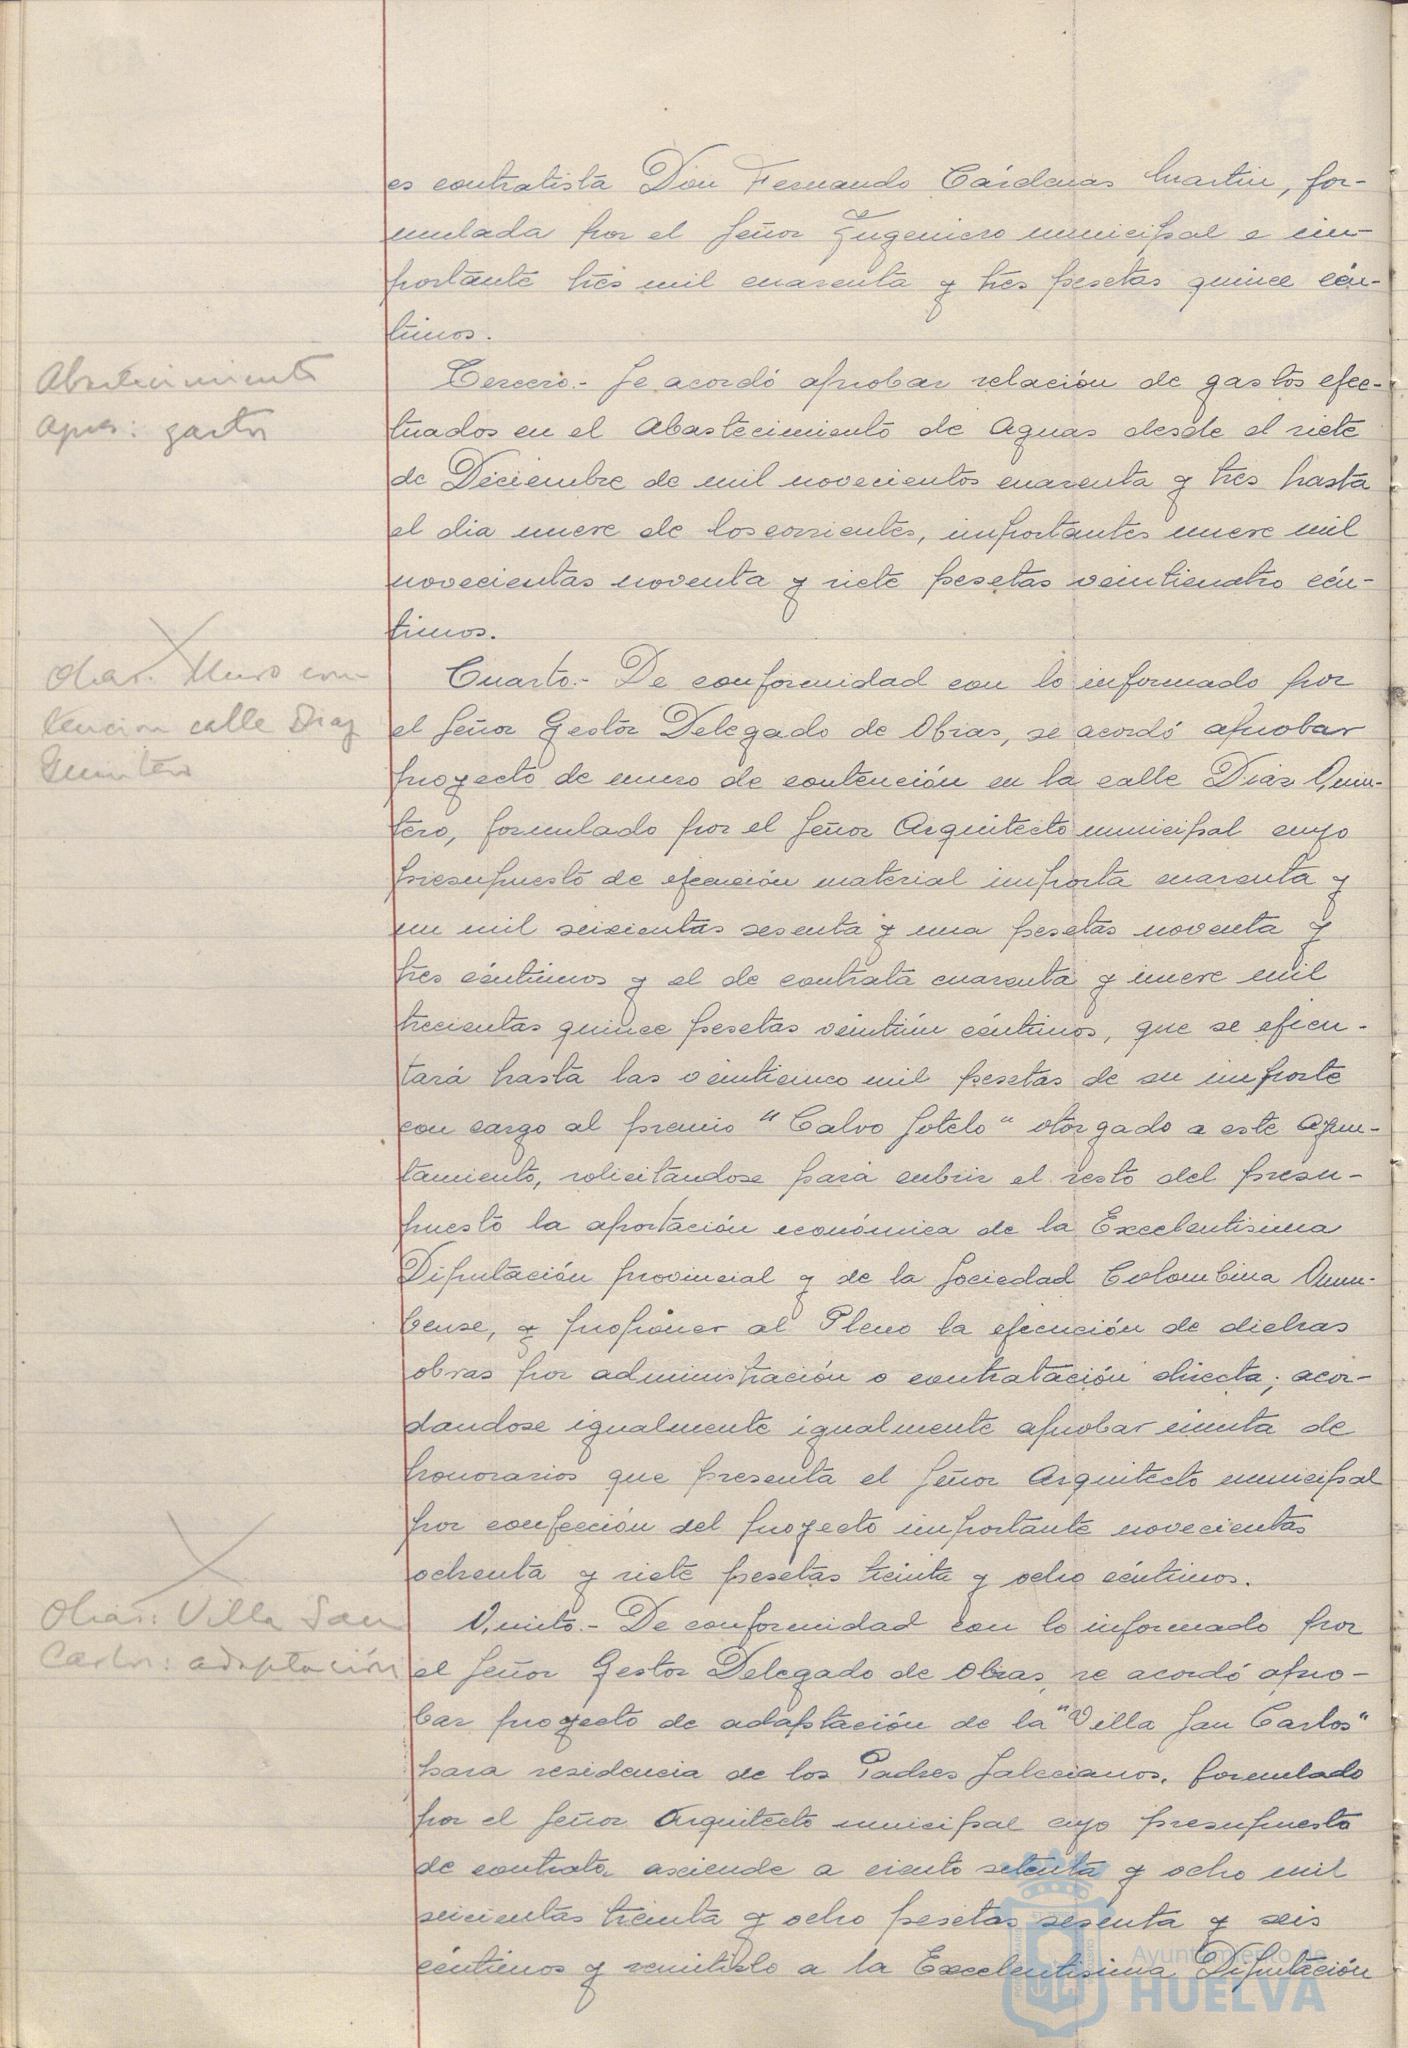 es contratista Don Fernando Cárdenas Martin, for-
mulada por el Señor Yngeniero municipal e im-
portante tres mil cuarenta y tres pesetas quince cén-
timos.
Abastecimiento
aguas: gastos
Tercero.- Se acordó aprobar relación de gastos efec-
tuados en el Abastecimiento de Aguas desde el siete
de Diciembre de mil novecientos cuarenta y tres hasta
el dia nueve de los corrientes, importantes nueve mil
novecientas noventa y siete pesetas veinticuatro cén-
timos.
Obras: Muro con-
tencion calle Diaz
Quintero
Cuarto.- De conformidad con lo informado por
el Señor Gestor Delegado de Obras, se acordó aprobar
proyecto de muro de contención en la calle Diaz Quin-
tero, formulado por el Señor Arquitecto municipal cuyo
presupuesto de ejecución material importa cuarenta y
un mil seiscientas sesenta y una pesetas noventa y
tres céntimos y el de contrata cuarenta y nueve mil
trecientas quince pesetas veintiún céntimos, que se ejecu-
tará hasta las veinticinco mil pesetas de su importe
con cargo al premio "Calvo Sotelo" otorgado a este Ayun-
tamiento, solicitandose para cubrir el resto del presu-
puesto la aportación económica de la Excelentisima
Diputación provincial y de la Sociedad Colombina Onu-
bense, y proponer al Pleno la ejecución de dichas
obras por administración o contratación directa; acor-
dandose igualmente igualmente aprobar minuta de
honorarios que presenta el Señor Arquitecto municipal
por confección del proyecto importante novecientas
ochenta y siete pesetas treinta y ocho céntimos.
Obras: Villa San
Carlos: adaptación
Quinto.- De conformidad con lo informado por
el Señor Gestor Delegado de Obras, se acordó apro-
bar proyecto de adaptación de la "Villa San Carlos"
para residencia de los Padres Salecianos, formulado
por el Señor Arquitecto municipal cuyo presupuesto
de contrata asciende a ciento setenta y ocho mil
seicientas treinta y ocho pesetas sesenta y seis
céntimos y remitirlo a la Excelentisima Diputación
Ayuntamiento de
HUELVA